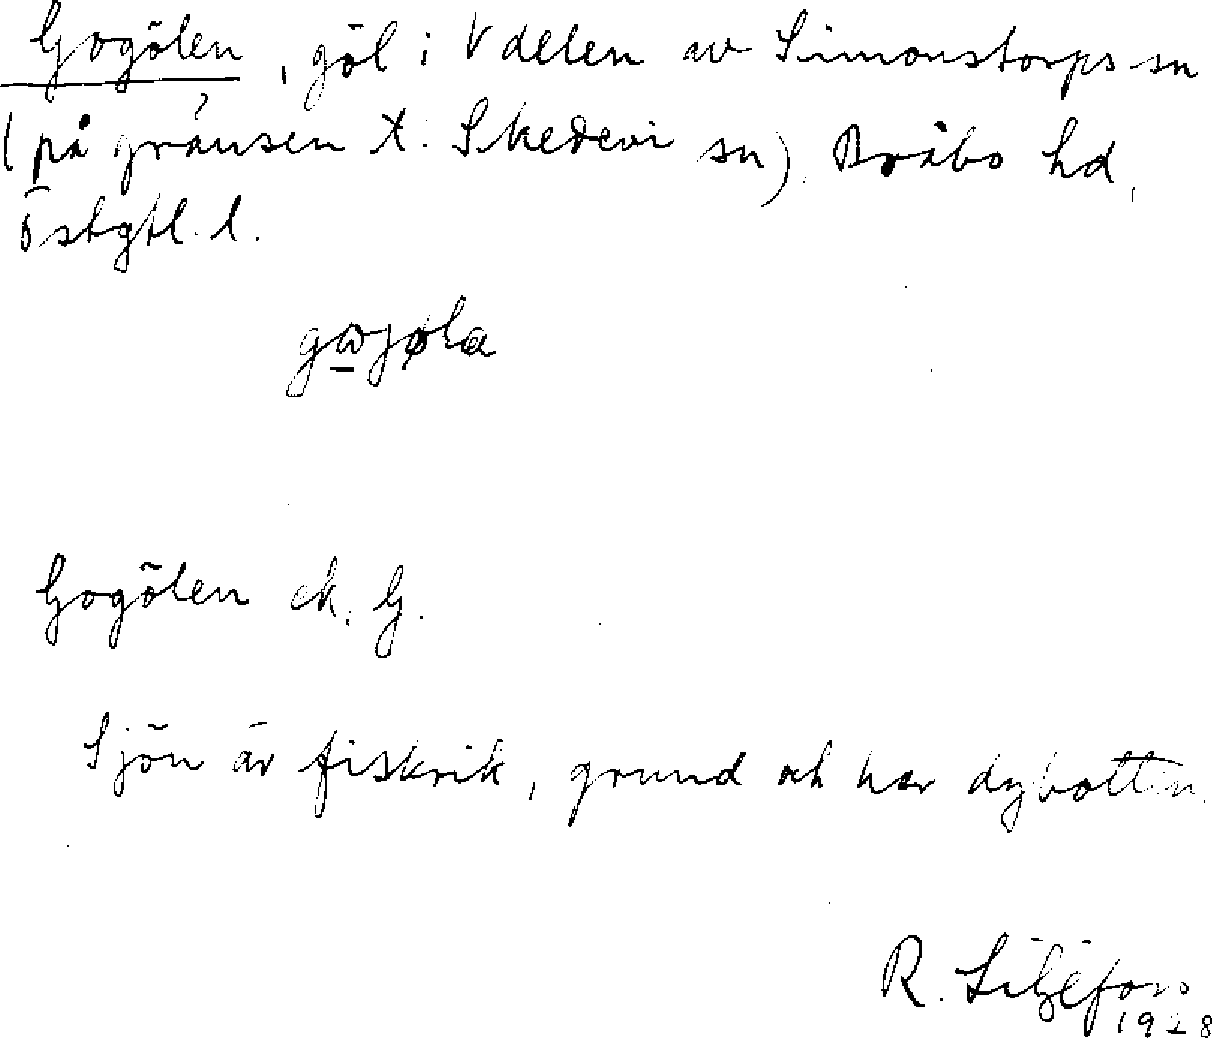 Gogölen, göl i V delen av Simonstorps sn
(på gränsen t. Skedevi sn). Bråbo hd,
Östgtl. l.
gωjøla
Gogölen ek. G.
Sjön är fiskrik, grund och har dybotten.
R. Liljefors
1928